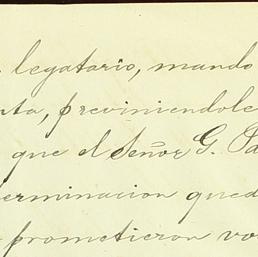 legatario, mando
nta, previniendole
que el Señor G. Pa
erminacion qued
prometieron vo